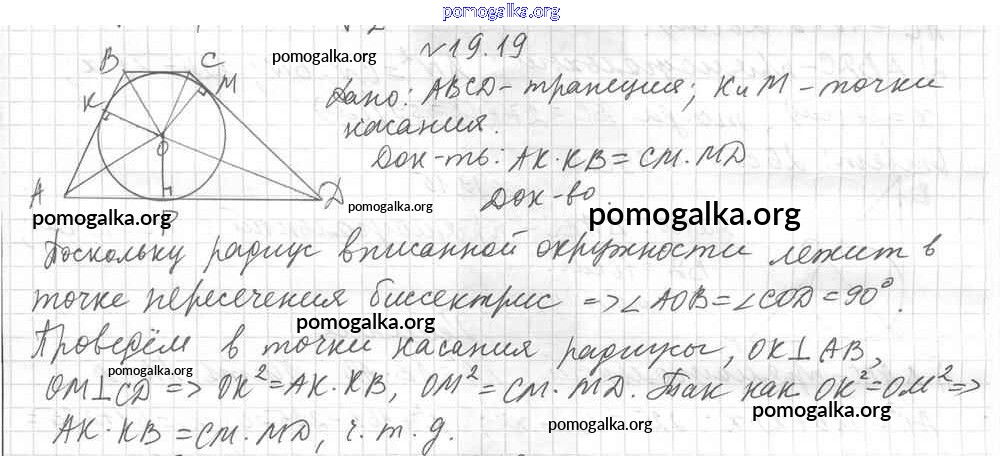 pomogalka.org
№19.19
Дано: ABCD - трапеция; K и M - точки
касания.
Док-ть: AK·KB = CM·MD
Док-во.
B C
K M
O
A D
pomogalka.org
pomogalka.org
pomogalka.org
pomogalka.org
Поскольку радиус вписанной окружности лежит в
точке пересечения биссектрис => ∠AOB = ∠COD = 90°.
pomogalka.org
Проведём в точки касания радиусы, OK⊥AB,
pomogalka.org
OM⊥CD => OK² = AK·KB, OM² = CM·MD. Так как OK² = OM² =>
pomogalka.org
AK·KB = CM·MD, ч.т.д.
pomogalka.org